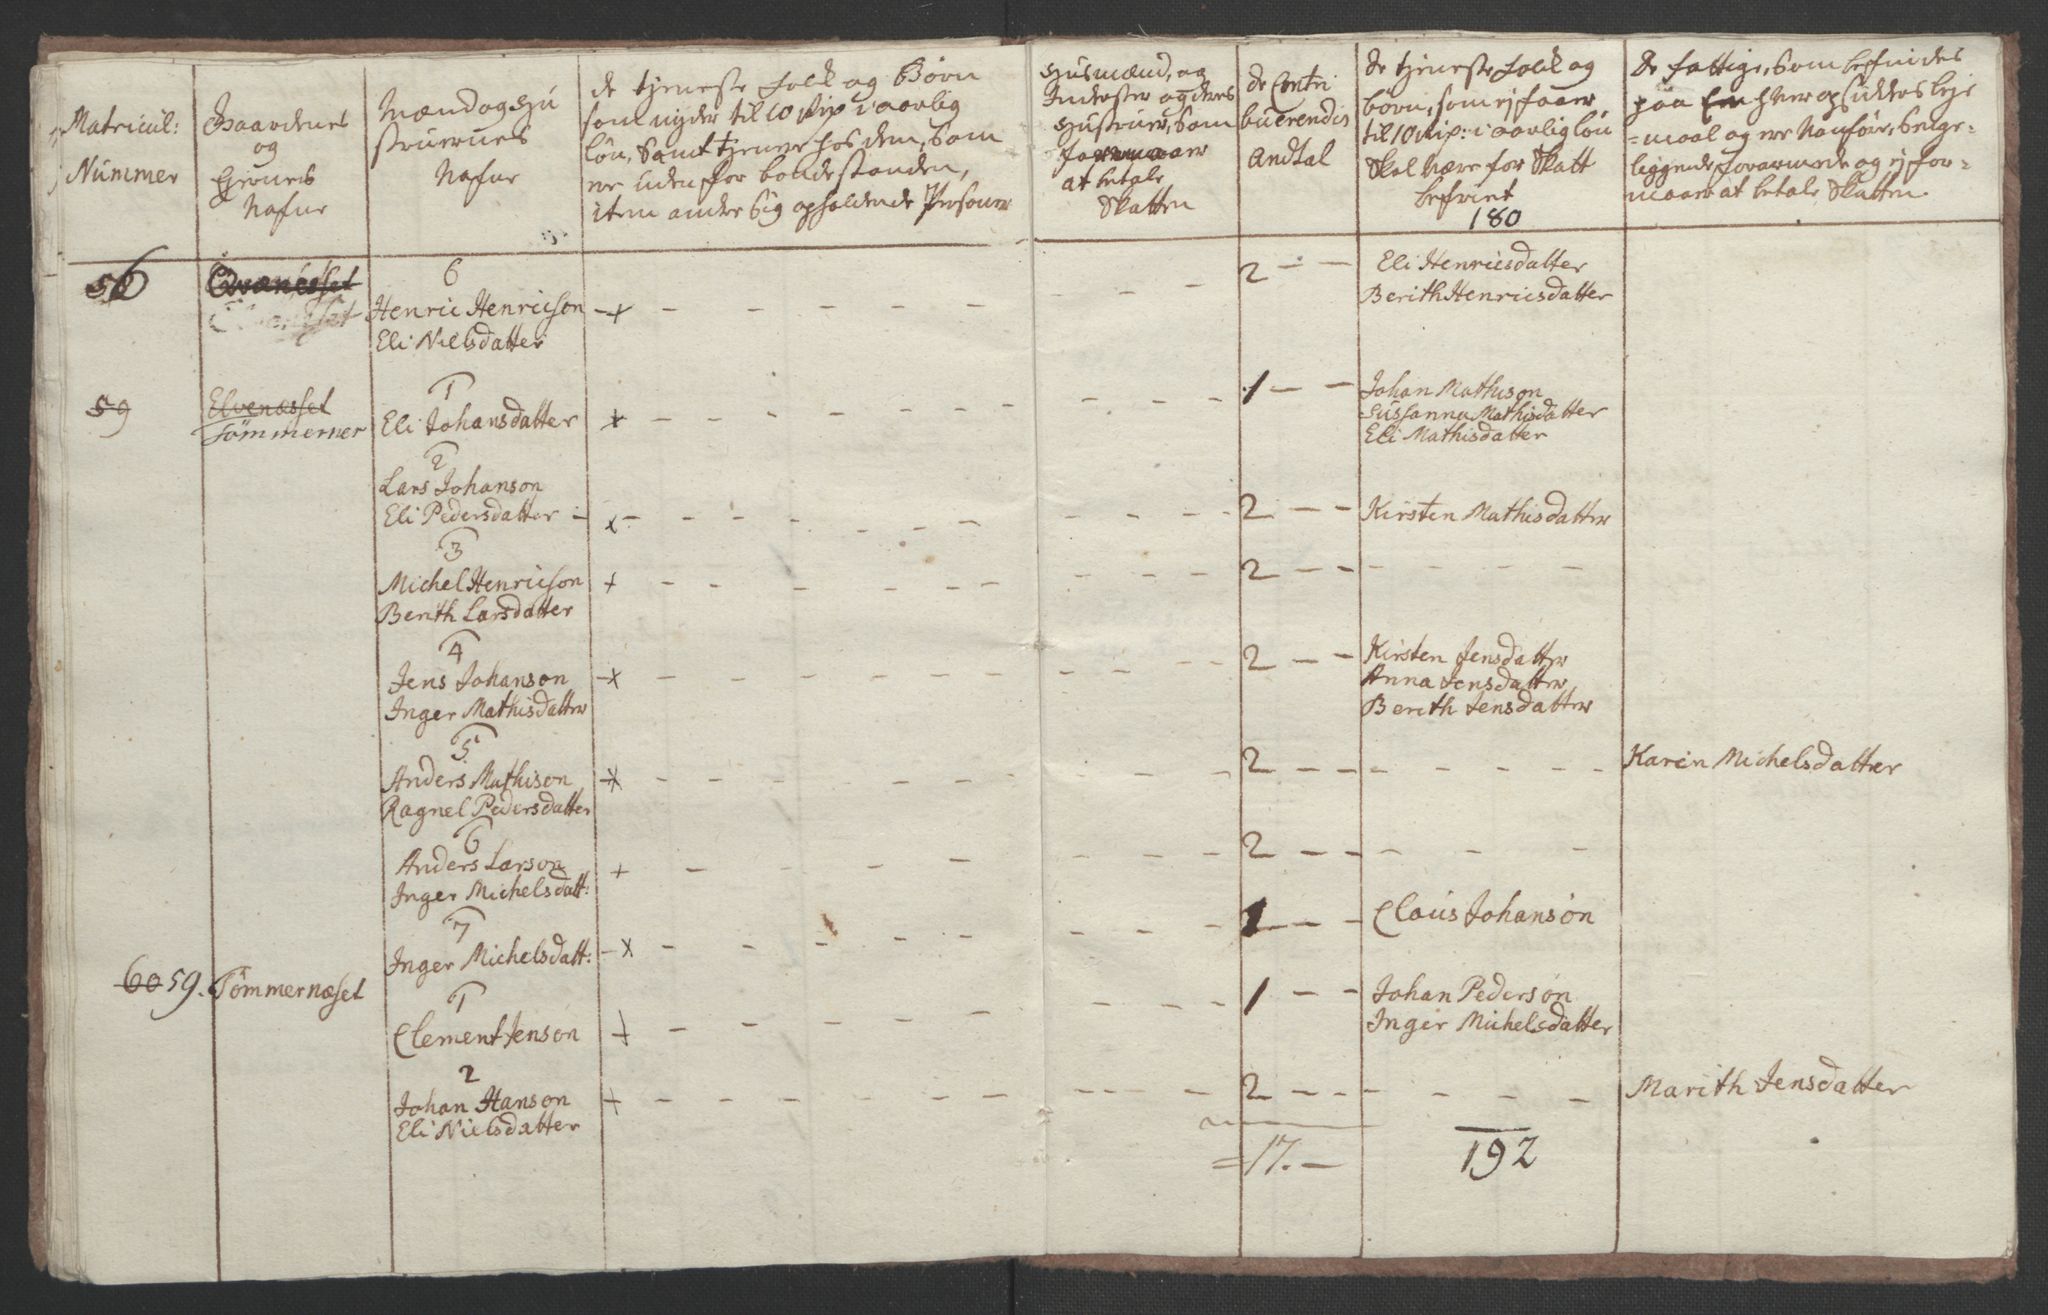 Matricul:
Nummer
Gaardenes
og
Eiernes
Nafne
Mænd og Hu
struernes
Nafne
de tjeneste Folk og Børn
som nyder til 10 Rixd i aarlig
løn, Samt tjener hos dem, Som
ere uden for bondestanden,
item andre Sig opholdende Personer
Husmænd, og
Inderster og deres
Hustruer, Som
Formaaer
at betale
Skatten
de Contri
buerendis
Andtal
De tjeneste Folk og
børn, som ej faaer
til 10 Rixd: i aarlig løn
Skal være for Skatt
befriet
180
De fattige, Som befindes
paa Enhver opsidders leje
=maal og ere Vanføre, Senge=
liggende forarmede og ej for=
maaer at betale Skatten.
56
Qvænesset
6
Henric Henricson
Eli Nielsdatter
+
2
Eli Henricsdatter
Berith Henricsdatter
59
Elvenæsset
Tømmerner
1
Eli Johansdatter
+
1
Johan Mathison
Sussanna Mathisdatter
Eli Mathisdatter
2
Lars Johanson
Eli Pedersdatter
x
2
Kirsten Mathisdatter
3
Michel Henricson
Berith Larsdatter
+
2
4
Jens Johanson
Inger Mathisdatter
x
2
Kirsten Jensdatter
Anna Jensdatter
Berith Jensdatter
5
Anders Mathison
Ragnel Pedersdatter
x
2
Karen Michelsdatter
6
Anders Larson
Inger Michelsdatt:
+
2
7
Inger Michelsdatt:
x
1
Claus Johanson
60 59. Tømmernæset
1
Clement Jenson
+
1
Johan Pederson
Inger Michelsdatter
2
Johan Hanson
Eli Nielsdatter
+
2
Marith Jensdatter
=17.
192